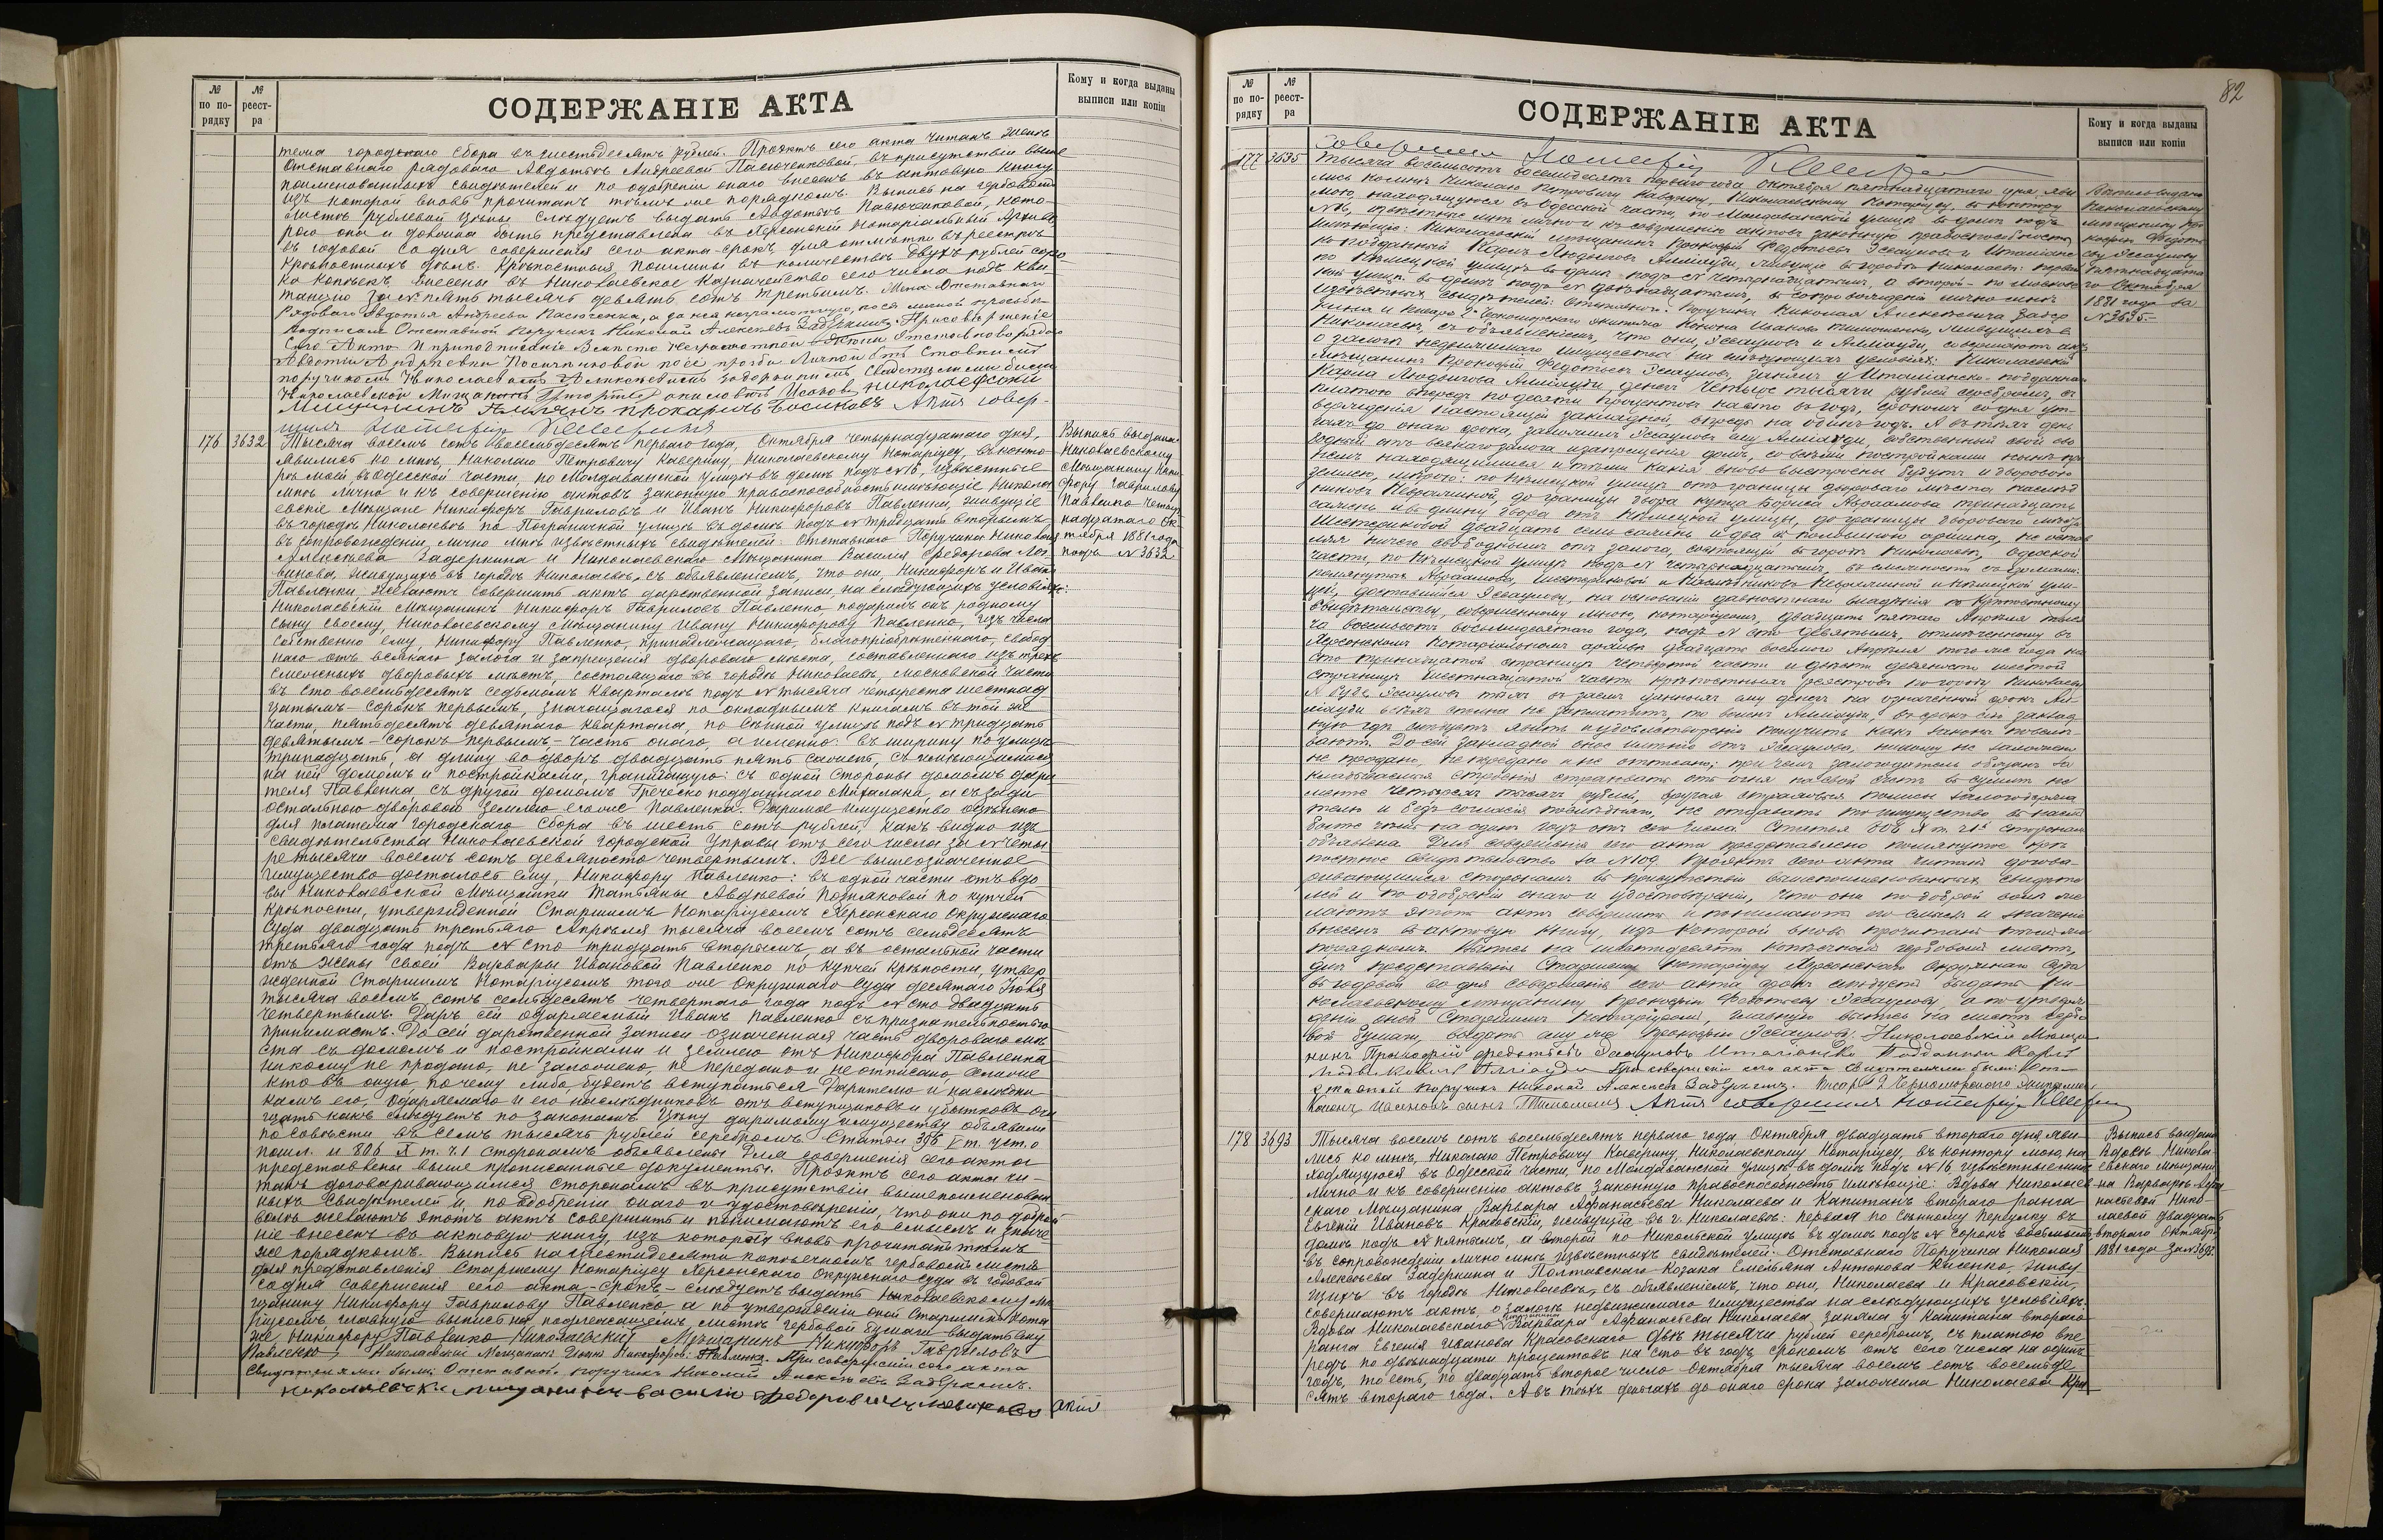 № по по-рядку
№ реест-ра
СОДЕРЖАНІЕ АКТА
Кому и когда выданы выписи или копіи
тежа городскаго сбора въ шестьдесятъ рублей. Проэктъ сего акта читанъ женѣ
Отставнаго рядоваго Авдотьѣ Андреевой Пасюченковой, въ присутствіи выше
поименованныхъ свидѣтелей и по одобреніи онаго внесенъ въ актовую книгу
изъ которой вновь прочитанъ тѣмъ же порядкомъ. Выпись на гербовомъ
листѣ рублевой цѣны слѣдуетъ выдать Авдотьѣ Пасюченковой, кото-
рою она и должна быть представлена въ Херсонскій Нотаріальный Архивъ
въ годовой со дня совершенія сего акта срокъ для отмѣтки въ реестрѣ
крѣпостныхъ дѣлъ. Крѣпостныя пошлины въ количествѣ двухъ рублей соро
ка копѣекъ, внесены въ Николаевское Казначейство сего числа подъ кви
танцію за № пять тысячъ девять сотъ третьимъ. Жена Отставнаго
Рядоваго Авдотья Андреева Пасюченкова, а за нея неграмотную, по ея личной просьбѣ
подписалъ Отставной Поручикъ Николай Алексѣевъ Задеркинъ. При совершеніи
сего Акта и при подписаніи вмѣсто неграмотной Отставнова рядово
Авдотіи Андрѣевны Пасюченковой по ее прозбѣ личной отставнымъ
поручикомъ Николаемъ Алексѣевымъ Задеркинымъ свидѣтелями были
Николаевской Мещанинъ Григорій Исаковъ Николаефский
Мищининъ прокаричъ Босиковъ Актъ совер-
шилъ Нотаріусъ Каверинъ
176 3632 Тысяча восемь сотъ восемьдесятъ перваго года, Октября четырнадцатаго дня,
явились ко мнѣ, Николаю Петровичу Каверину, Николаевскому Нотаріусу, въ конто-
рѣ моей, въ Одесской части, по Молдаванской улицѣ въ домѣ подъ № 16, извѣстные
мнѣ лично и къ совершенію актовъ законную правоспособность имѣющіе Никола
евскіе Мѣщане Никифоръ Гавриловъ и Иванъ Никифоровъ Павленки, живущіе
въ городѣ Николаевѣ по Пограничной улицѣ въ домѣ подъ № тридцать вторымъ
въ сопровожденіи лично мнѣ извѣстныхъ свидѣтелей: Отставнаго Поручика Николая
Алексѣева Задеркина и Николаевскаго Мѣщанина Василія Федорова Ло-
винова, живущихъ въ городѣ Николаевѣ, съ объявленіемъ, что они, Никифоръ и Иванъ
Павленки, желаютъ совершить актъ дарственной записи, на слѣдующихъ условіяхъ:
Николаевскій Мѣщанинъ Никифоръ Гавриловъ Павленко подарилъ онъ родному
сыну своему, Николаевскому Мѣщанину Ивану Никифорову Павленко, изъ числа
собственно ему, Никифору Павленко, принадлежащаго, благопріобрѣтеннаго, свобод
наго отъ всякаго залога и запрещенія двороваго мѣста, составленнаго изъ трехъ
смежныхъ дворовыхъ мѣстъ, состоящаго въ городѣ Николаевѣ, Московской части
въ сто восемьдесятъ седьмомъ кварталѣ подъ № тысяча четыреста шестнад
цатымъ – сорокъ первымъ, значащагося по окладнымъ книгамъ въ той же
части, пятьдесятъ девятаго квартала, по Сѣнной улицѣ подъ № тридцать
девятымъ – сорокъ первымъ, – часть онаго, а именно: въ ширину по улицѣ
тринадцать, а длину во дворъ двадцать пять саженъ, съ имѣющимися
на ней домомъ и постройками, граничащую: съ одной стороны домомъ дари
теля Павленка, съ другой домомъ Греческо подданнаго Михалаки, а съ зади
остальною дворовою землею его же Павленка. Даримое имущество оцѣнено
для платежа городскаго сбора въ шесть сотъ рублей, какъ видно изъ
свидѣтельства Николаевской Городской Управы отъ сего числа за № четы
ре тысячи восемь сотъ девяносто четвертымъ. Все вышеозначенное
имущество досталось ему, Никифору Павленко: въ одной части отъ вдо
вы Николаевской Мѣщанки Татьяны Авдѣевой Поляковой по купчей
крѣпости, утвержденной Старшимъ Нотаріусомъ Херсонскаго Окружнаго
Суда двадцать третьяго Апрѣля тысяча восемь сотъ семьдесятъ
третьяго года подъ № сто тридцать вторымъ, а въ остальной части
отъ жены своей Варвары Ивановой Павленко по купчей крѣпости, утвер
жденной Старшимъ Нотаріусомъ того же Окружнаго Суда десятаго Іюля
тысяча восемь сотъ семьдесятъ четвертаго года подъ № сто двадцать
четвертымъ. Даръ сей одаряемый Иванъ Павленко съ признательностью
принимаетъ. До сей дарственной записи означенная часть двороваго мѣ
ста съ домомъ и постройками и землею отъ Никифора Павленка
никому не продано, не заложено, не передано и не отписано, если же
кто въ оную, почему либо будетъ вступаться Дарителю и наслѣдни
камъ его, одаряемаго и его наслѣдниковъ отъ вступщиковъ и убытковъ очи
щать какъ слѣдуетъ по законамъ. Цѣну даримому имуществу объявили
по совѣсти въ семь тысячъ рублей серебромъ. Статьи 396 V т. уст. о
пошл. и 806 X т. ч. 1 сторонамъ объявлены. Для совершенія сего акта
представлены выше прописанные документы. Проэктъ сего акта чи-
танъ договаривающимся сторонамъ въ присутствіи вышепоименован
ныхъ свидѣтелей и, по одобреніи онаго и удостовѣреніи, что они по доброй
волѣ желаютъ этотъ актъ совершить и понимаютъ его смыслъ и значе
ніе внесенъ въ актовую книгу, изъ которой вновь прочитанъ тѣмъ
же порядкомъ. Выпись на шестидесяти копѣечномъ гербовомъ листѣ
для представленія Старшему Нотаріусу Херсонскаго Окружнаго Суда въ годовой
со дня совершенія сего акта – срокъ – слѣдуетъ выдать Николаевскому мѣ
щанину Никифору Гаврилову Павленко, а по утвержденіи оной Старшимъ Нота
ріусомъ, главную выпись на надлежащемъ листѣ гербовой бумаги выдать ему
же, Никифору Павленко. Николаевский Мѣщанинъ Никифоръ Гавриловъ
Павленко, Николаевскій Мещанинъ Иванъ Никифоровъ Павленко. При совершеніи сего акта
свидѣтелями были: Отставной поручикъ Николай Алексѣевъ Задеркинъ.
Николаевски мищанинъ Василий Федоровичъ Ловинов Актъ
Выпись выдана
Николаевскому
Мѣщанину Ники
фору Гаврилову
Павленко четыр
надцатаго Ок-
тября 1881 года
подъ № 3632.
82
№ по по-рядку
№ реест-ра
СОДЕРЖАНІЕ АКТА
Кому и когда выданы выписи или копіи
Совершилъ Нотаріусъ Каверинъ
177 3635 Тысяча восемьсотъ восемьдесятъ перваго года Октября пятнадцатаго дня яви
лись ко мнѣ Николаю Петровичу Каверину, Николаевскому Нотаріусу, въ контору
мою, находящуюся въ Одесской части, по Молдаванской улицѣ въ домѣ подъ
№ 16, извѣстные мнѣ лично и къ совершенію актовъ законную правоспособность
имѣющіе: Николаевскій мѣщанинъ Прокофій Федотьевъ Эссауловъ и Итальянс
ко-подданный Карлъ Людвиговъ Алміауди, живущіе въ городѣ Николаевѣ: первый
по Нѣмецкой улицѣ въ домѣ подъ № четырнадцатымъ, а второй – по
улицѣ въ домѣ подъ № двѣнадцатымъ, въ сопровожденіи лично мнѣ
извѣстныхъ свидѣтелей: отставнаго Поручика Николая Алексѣевича Задер
кина и писаря 2го Черноморскаго экипажа Конона Иванова Тимошенка, живущихъ въ
Николаевѣ, съ объявленіемъ, что они, Эссауловъ и Алміауди, совершаютъ актъ
о залогѣ недвижимаго имущества на слѣдующихъ условіяхъ: Николаевскій
мѣщанинъ Прокофій Федотьевъ Эссауловъ, занялъ у Итальянско-подданнаго
Карла Людвигова Алміауди, денегъ четыре тысячи рублей серебромъ, съ
платою впередъ по десяти процентовъ на сто въ годъ, срокомъ со дня ут-
вержденія настоящей закладной, впредь на одинъ годъ. А въ тѣхъ день
гахъ до онаго срока, заложилъ Эссауловъ ему Алміауди, собственный свой сво
бодный отъ всякаго залога и запрещенія домъ, со всѣми постройками нынѣ при
немъ находящимися и тѣми какія вновь выстроены будутъ и дворовою
землею, мѣрою: по Нѣмецкой улицѣ отъ границы двороваго мѣста наслѣд
никовъ , до границы двора купца Бориса Абрамова тринадцать
саженъ и въ длину двора отъ Нѣмецкой улицы, до границы двороваго мѣста
Шестериковой двадцать семь саженъ и два съ половиною аршина, не остав
ляя ничего свободнымъ отъ залога, состоящій въ городѣ Николаевѣ, Одесской
части, по Нѣмецкой улицѣ подъ № четырнадцатымъ, въ смежности съ домами:
помянутыхъ Абрамова, Шестериковой и Наслѣдниковъ и Нѣмецкой ули-
цей, доставшійся Эссаулову, на основаніи давностнаго владѣнія по крѣпостному
свидѣтельству, совершенному мною, нотаріусомъ, двадцать пятаго Апрѣля тыся
ча восемьсотъ восьмидесятаго года, подъ № сто девятымъ, отмѣченному въ
Херсонскомъ Нотаріальномъ архивѣ двадцать восьмого Апрѣля того же года на
сто тринадцатой страницѣ четвертой части и двѣсти девяносто шестой
страницѣ шестнадцатой части крѣпостныхъ реестровъ по городу Николаеву
А буде Эссауловъ тѣхъ въ заемъ данныхъ ему денегъ на означенный срокъ Ал-
міауди всѣхъ сполна не заплатитъ, то воленъ Алміауди, въ срокъ сію заклад
ную гдѣ слѣдуетъ явить и удовлетвореніе получить какъ законы повелѣ-
ваютъ. До сей закладной оное имѣніе отъ Эссаулова, никому не заложено
не продано, не передано и не отписано; при чемъ залогодатель обязанъ за
кладываемыя строенія страховать отъ огня на свой счетъ въ суммѣ не
менѣе четырехъ тысячъ рублей, вручая страховыя полисы залогодержа
телю и безъ согласія послѣдняго, не отдавать то имущество въ наемъ
болѣе чѣмъ на одинъ годъ отъ сего числа. Статья 806 X т. ч. 1й сторонамъ
объявлена. Для совершенія сего акта представлено помянутое крѣ
постное свидѣтельство за № 109. Проэктъ сего акта читанъ догова-
ривающимся сторонамъ въ присутствіи вышепоименованныхъ свидѣте
лей и по одобреніи онаго и удостовѣреніи, что они по доброй волѣ же
лаютъ этотъ актъ совершить и понимаютъ его смыслъ и значеніе
внесенъ въ актовую книгу, изъ которой вновь прочитанъ тѣмъ же
порядкомъ. Выпись на шестидесяти копѣечномъ гербовомъ листѣ,
для представленія Старшему Нотаріусу Херсонскаго Окружнаго Суда
въ годовой со дня совершенія сего акта срокъ слѣдуетъ выдать Ни-
колаевскому мѣщанину Прокофію Федотьеву Эссаулову, а по утверж
деніи оной Старшимъ Нотаріусомъ, главную выпись на листѣ гербо
вой бумаги, выдать ему же Прокофію Эссаулову. Николаевскій Мѣща
нинъ Прокофій Федотьевъ Эссауловъ Итальянско Подданный Карлъ
Алміауди При совершеніи сего акта свидетелями были: От-
ставной поручикъ Николай Алексѣевъ Задеркинъ. Писарь 2 Черноморскаго Экипажа
Кононъ Ивановъ сынъ Тимошенко Актъ совершилъ Нотаріусъ Каверинъ
Выпись выдана
Николаевскому
мѣщанину Про
кофію Федоть
еву Эссаулову
пятнадцата
го Октября
1881 года за
№ 3635.–
178 3693 Тысяча восемь сотъ восемьдесятъ перваго года Октября двадцать втораго дня, яви
лись ко мнѣ, Николаю Петровичу Каверину, Николаевскому Нотаріусу, въ контору мою, на
ходящуюся въ Одесской части, по Молдаванской улицѣ въ домѣ подъ № 16, извѣстные мнѣ
лично и къ совершенію актовъ законную правоспособность имѣющіе: Вдова Николаев
скаго Мѣщанина Варвара Афанасьева Николаева и Капитанъ втораго ранга
Евгеній Ивановъ Красовскій, живущіе въ г. Николаевѣ: первая по Сѣнному переулку въ
домѣ подъ № пятымъ, а второй по Никольской улицѣ въ домѣ подъ № сорокъ восьмымъ
въ сопровожденіи лично мнѣ извѣстныхъ свидѣтелей: Отставнаго Поручика Николая
Алексѣева Задеркина и Полтавскаго Козака Емельяна Антонова Лысенко, живу
щихъ въ городѣ Николаевѣ, съ объявленіемъ, что они, Николаева и Красовскій,
совершаютъ актъ о залогѣ недвижимаго имущества на слѣдующихъ условіяхъ:
Вдова Николаевскаго Мѣщанина Варвара Афанасьева Николаева, заняла у Капитана втораго
ранга Евгенія Иванова Красовскаго двѣ тысячи рублей серебромъ, съ платою впе
редъ по двѣнадцати процентовъ на сто въ годъ, срокомъ отъ сего числа на одинъ
годъ, то есть, по двадцать второе число Октября тысяча восемь сотъ восемьде
сятъ втораго года. А въ тѣхъ деньгахъ до онаго срока заложила Николаева Кра
Выпись выдана
Вдовѣ Никола-
евскаго мѣщани
на Варварѣ Афа
насьевой Нико-
лаевой двадцать
втораго Октября
1881 года за № 3693.